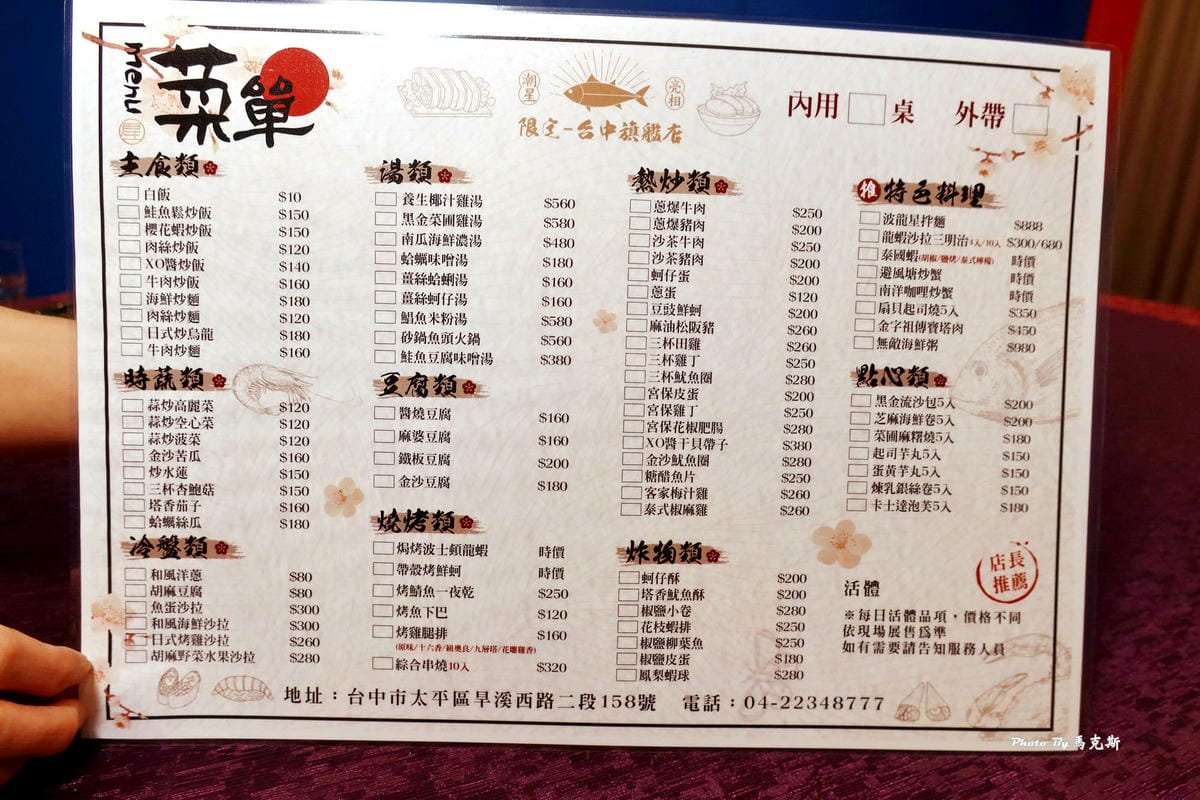 menu
菜單
潮星
亮相
限定-台中旗艦店
內用 桌 外帶
主食類
白飯 $10
鮭魚鬆炒飯 $150
櫻花蝦炒飯 $150
肉絲炒飯 $120
XO醬炒飯 $140
牛肉炒飯 $160
海鮮炒麵 $180
肉絲炒麵 $120
日式炒烏龍 $180
牛肉炒麵 $160
時蔬類
蒜炒高麗菜 $120
蒜炒空心菜 $120
蒜炒菠菜 $120
金沙苦瓜 $160
炒水蓮 $150
三杯杏鮑菇 $150
塔香茄子 $160
蛤蠣絲瓜 $180
冷盤類
和風洋蔥 $80
胡麻豆腐 $80
魚蛋沙拉 $300
和風海鮮沙拉 $300
日式烤雞沙拉 $260
胡麻野菜水果沙拉 $280
湯類
養生椰汁雞湯 $560
黑金菜圃雞湯 $580
南瓜海鮮濃湯 $480
蛤蠣味噌湯 $180
薑絲蛤蜊湯 $160
薑絲蚵仔湯 $160
鯧魚米粉湯 $580
砂鍋魚頭火鍋 $560
鮭魚豆腐味噌湯 $380
豆腐類
醬燒豆腐 $160
麻婆豆腐 $160
鐵板豆腐 $200
金沙豆腐 $180
燒烤類
焗烤波士頓龍蝦 時價
帶殼烤鮮蚵 時價
烤鯖魚一夜乾 $250
烤魚下巴 $120
烤雞腿排 $160
(原味/十六香/紐奧良/九層塔/花雕雞香)
綜合串燒10入 $320
熱炒類
蔥爆牛肉 $250
蔥爆豬肉 $200
沙茶牛肉 $250
沙茶豬肉 $200
蚵仔蛋 $200
蔥蛋 $120
豆豉鮮蚵 $200
麻油松阪豬 $260
三杯田雞 $260
三杯雞丁 $250
三杯魷魚圈 $280
宮保皮蛋 $200
宮保雞丁 $250
宮保花椒肥腸 $280
XO醬干貝帶子 $380
金沙魷魚圈 $280
糖醋魚片 $250
客家梅汁雞 $260
泰式椒麻雞 $260
炸物類
蚵仔酥 $200
塔香魷魚酥 $200
椒鹽小卷 $280
花枝蝦排 $250
椒鹽柳葉魚 $250
椒鹽皮蛋 $180
鳳梨蝦球 $280
推 特色料理
波龍星拌麵 $888
龍蝦沙拉三明治4入/10入 $300/680
泰國蝦(胡椒/鹽烤/泰式檸檬) 時價
避風塘炒蟹 時價
南洋咖哩炒蟹 時價
扇貝起司燒5入 $350
金字祖傳寶塔肉 $450
無敵海鮮粥 $980
點心類
黑金流沙包5入 $200
芝麻海鮮卷5入 $200
菜圃麻糬燒5入 $180
起司芋丸5入 $150
蛋黃芋丸5入 $150
煉乳銀絲卷5入 $150
卡士達泡芙5入 $180
店長
推薦
活體
※每日活體品項，價格不同
依現場展售為準
如有需要請告知服務人員
地址：台中市太平區旱溪西路二段158號 電話：04-22348777
Photo By 馬克斯